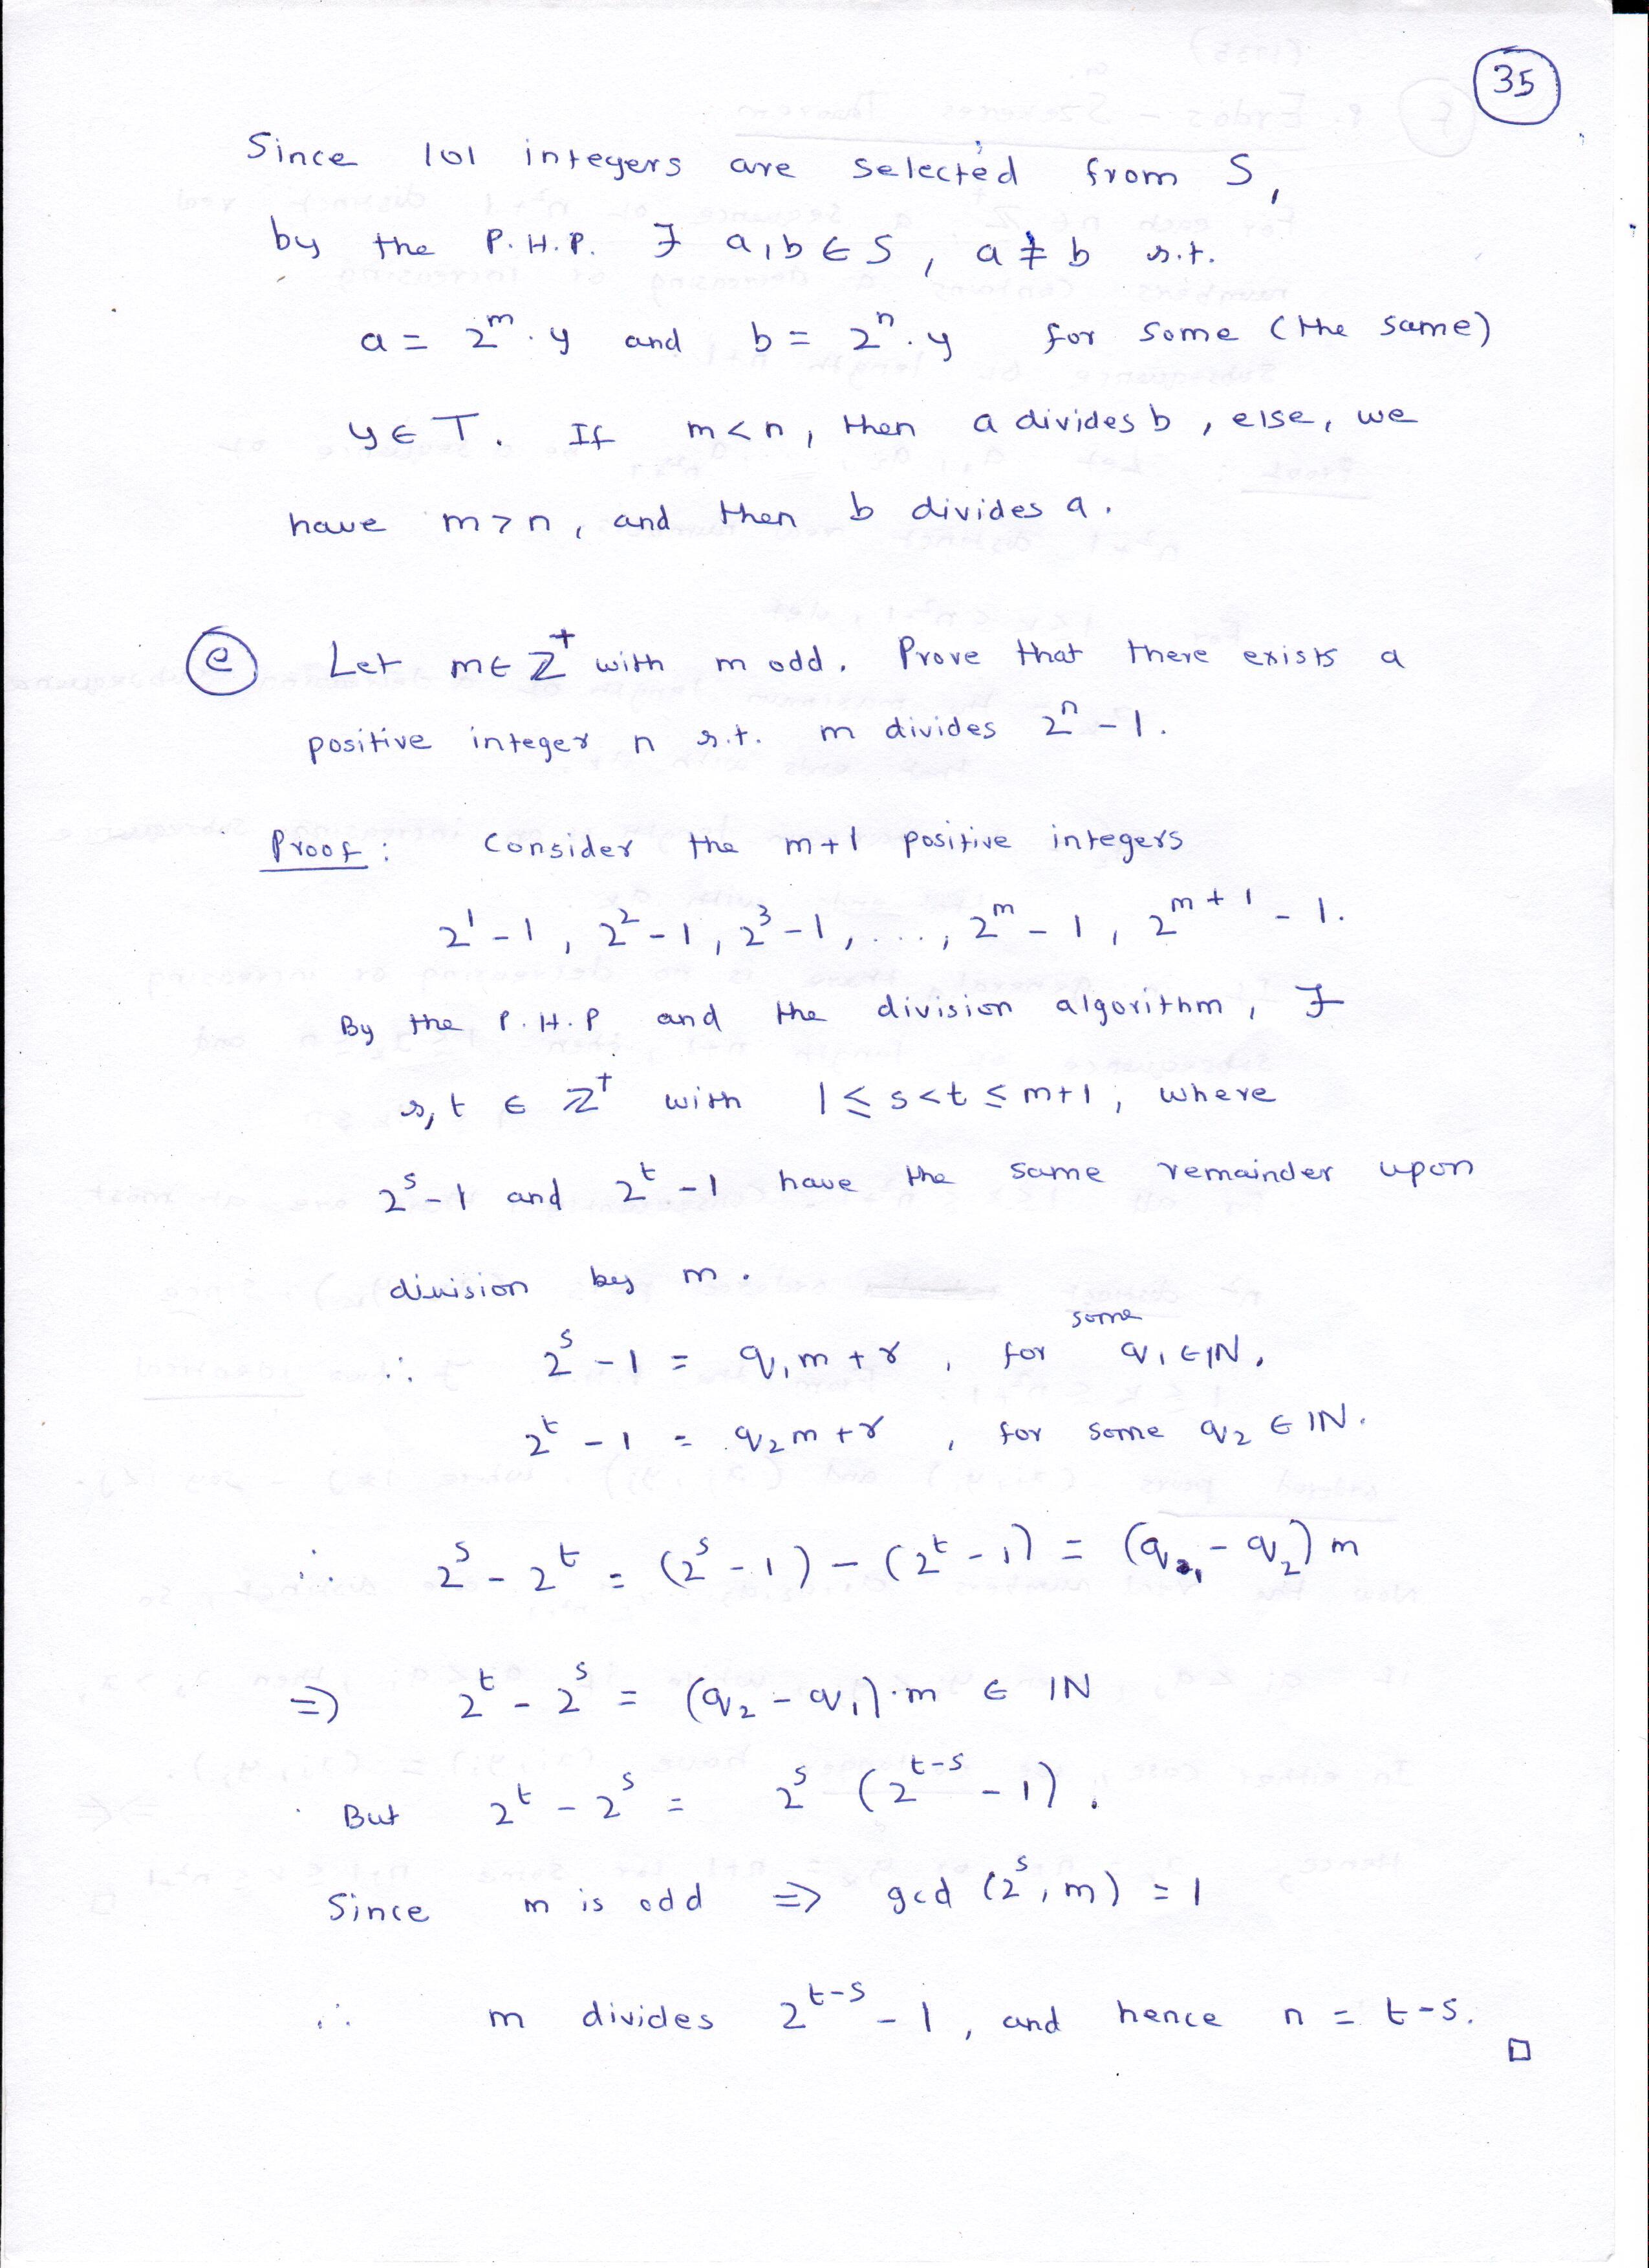 35
Since 101 integers are selected from S,
by the P.H.P. ∃ a,b ∈ S, a ≠ b s.t.
a = 2^m · y and b = 2^n · y for some (the same)
y ∈ T. If m < n, then a divides b, else, we
have m > n, and then b divides a.
(e) Let m ∈ Z^+ with m odd. Prove that there exists a
positive integer n s.t. m divides 2^n - 1.
Proof: Consider the m+1 positive integers
2^1 - 1, 2^2 - 1, 2^3 - 1, ..., 2^m - 1, 2^{m+1} - 1.
By the P.H.P and the division algorithm, ∃
s, t ∈ Z^+ with 1 ≤ s < t ≤ m+1, where
2^s - 1 and 2^t - 1 have the same remainder upon
division by m.
∴ 2^s - 1 = q_1 m + r, for some q_1 ∈ IN,
2^t - 1 = q_2 m + r, for some q_2 ∈ IN.
∴ 2^s - 2^t = (2^s - 1) - (2^t - 1) = (q_1 - q_2) m
⇒ 2^t - 2^s = (q_2 - q_1) · m ∈ IN
But 2^t - 2^s = 2^s (2^{t-s} - 1).
Since m is odd ⇒ gcd (2^s, m) = 1
∴ m divides 2^{t-s} - 1, and hence n = t - s. □